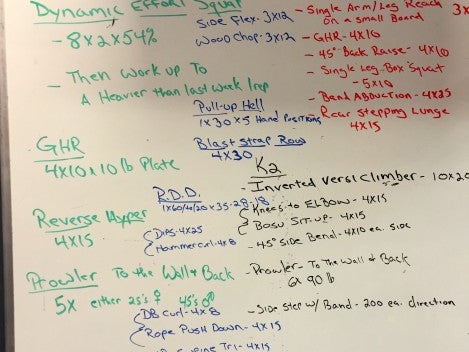 Dynamic Effort Squat
- 8x2x54%
- Then work up To
A Heavier than last week 1rep
GHR
4x10x10lb Plate
Reverse Hyper
4x15
Prowler To the Wall & Back
5x either 25's ♀ 45's ♂
Side Flex - 3x12
Wood Chop - 3x12
Pull-up Hell
1x30x5 Hand Positions
Blast Strap Row
4x30
R.D.D.
Dips 4x25
Hammer curl 4x8
DB Curl - 4x8
Rope Push Down - 4x15
Tri - 4x15
- Single Arm/Leg Reach
On a small Board
3x
- GHR - 4x10
- 45° Back Raise - 4x10
- Single Leg Box Squat
- 5x10
- Band Abduction - 4x25
Rear Stepping Lunge
4x15
K2
- Inverted Versiclimber - 10x20
Knees to Elbow - 4x15
Bosu Sit-up - 4x15
- 45° Side Bend - 4x10 ea. side
- Prowler - To the Wall & Back
6x 90 lb
- Side Step w/ Band - 200 ea. direction